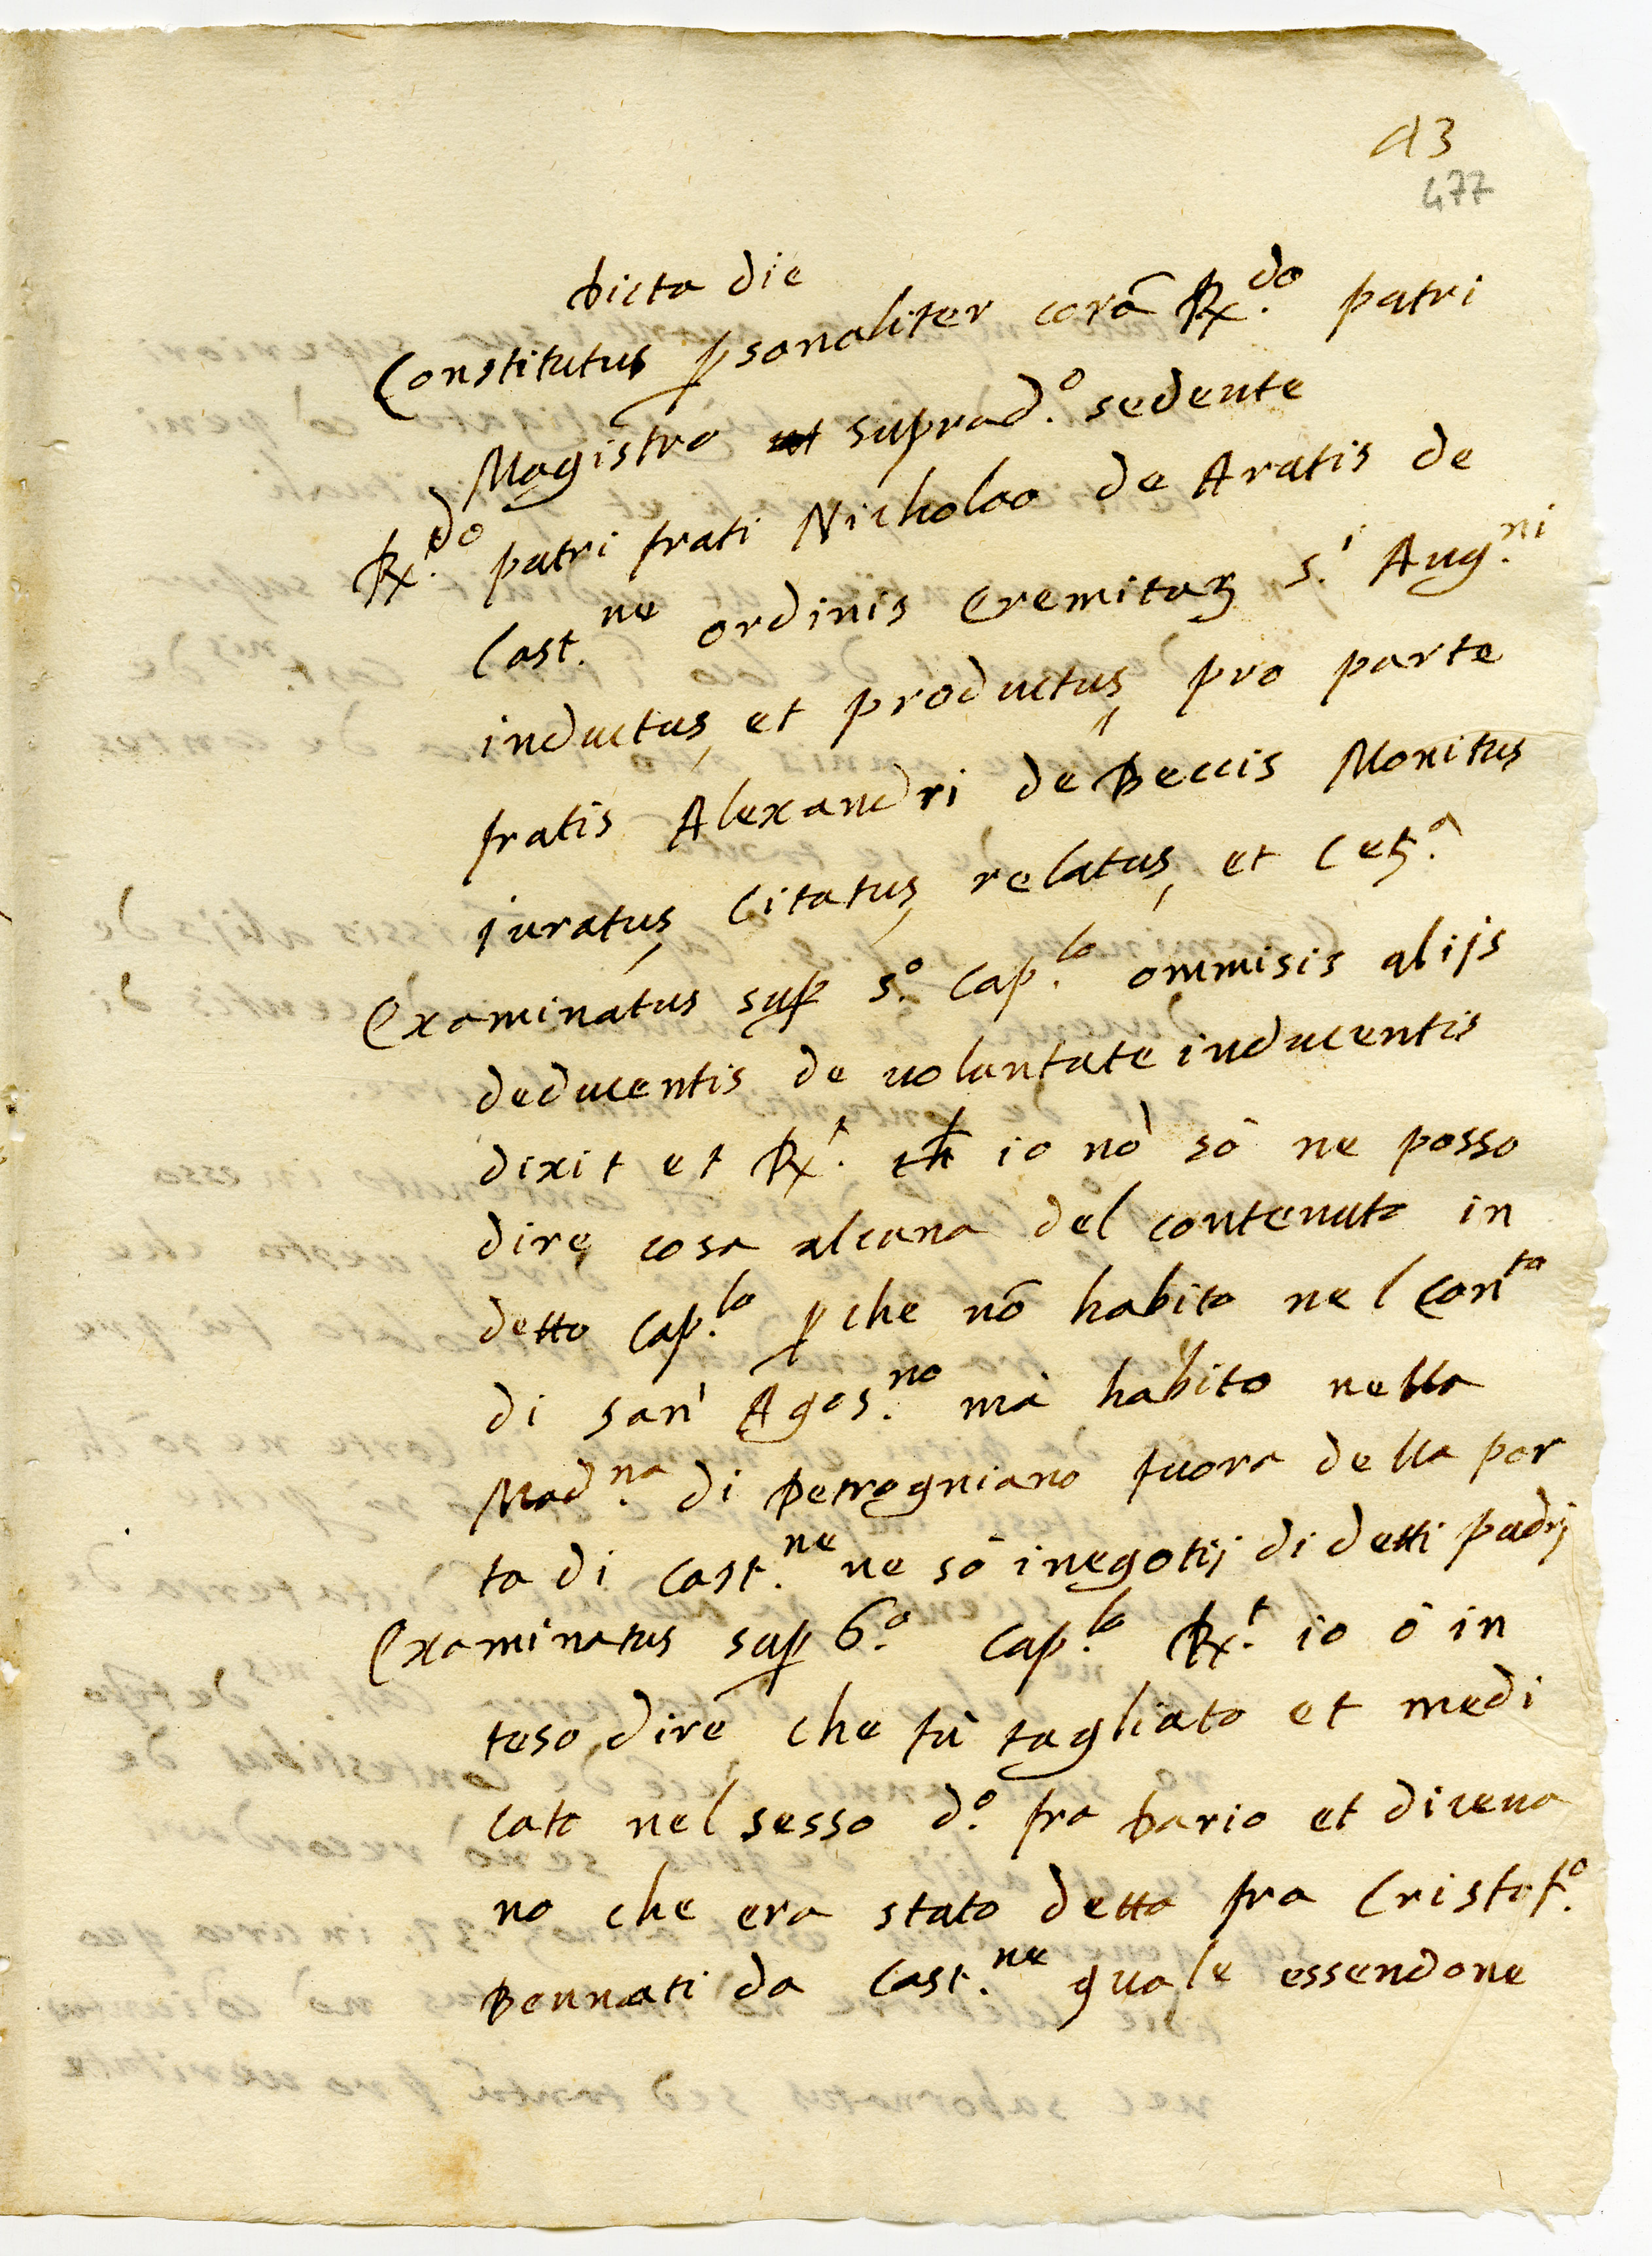 A3
477
Dicta die
Constitutus psonaliter corā R.do patri
Magistro suprad.o sedente
R.do patri frati Nicholao de Aratis de
Cast.ne ordinis Eremitaꝝ S.i Aug.ni
inductus et productus pro parte
fratis Alexandri de Beccis Monitus
iuratus Citatus relatus et Cetꝝ.a
Examinatus sup s.o Cap.lo ommisis alijs
deducentis de uoluntate inducentis
dixit et R.t io nō sò ne posso
dire cosa alcuna del contenuto in
detto Cap.lo pche nō habito nel Conto
di san Agos.no mà habito nella
Mad.na di Petrogniano fuora della por
ta di Cast.ne ne sò i negotij di detti padrj
Examinatus sup 6.o Cap.lo R.t io ò in
teso dire che fù tagliato et medi
cato nel sesso d.o fra Dario et diceua
no che era stato detto fra Cristof.o
Bennati da Cast.ne quale essendone